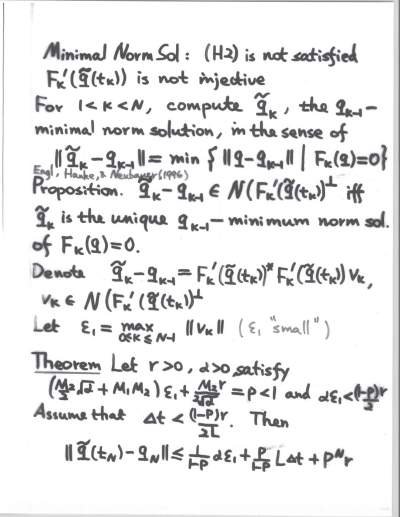 Minimal Norm Sol : (H2) is not satisfied
F_K'(q̃(t_K)) is not injective
For 1<K<N, compute q̃_K, the q_{K-1}-
minimal norm solution, in the sense of
||q̃_K - q_{K-1}|| = min {||q - q_{K-1}|| | F_K(q)=0}
Engl, Hanke, & Neubauer (1996)
Proposition. q̃_K - q_{K-1} ∈ N(F_K'(q̃(t_K))^⊥ iff
q̃_K is the unique q_{K-1} - minimum norm sol.
of F_K(q)=0.
Denote q̃_K - q_{K-1} = F_K'(q̃(t_K))* F_K'(q̃(t_K)) v_K,
v_K ∈ N(F_K'(q̃(t_K))^⊥
Let ε_1 = max_{0≤K≤N-1} ||v_K|| (ε_1 "small")
Theorem Let r>0, α>0, satisfy
(M_2/2 √α + M_1 M_2) ε_1 + M_2 r/2√α = ρ<1 and αε_1 < (1-ρ)r/2
Assume that Δt < (1-ρ)r/2L. Then
||q̃(t_N) - q_N|| ≤ 1/1-ρ αε_1 + ρ/1-ρ LΔt + ρ^N r